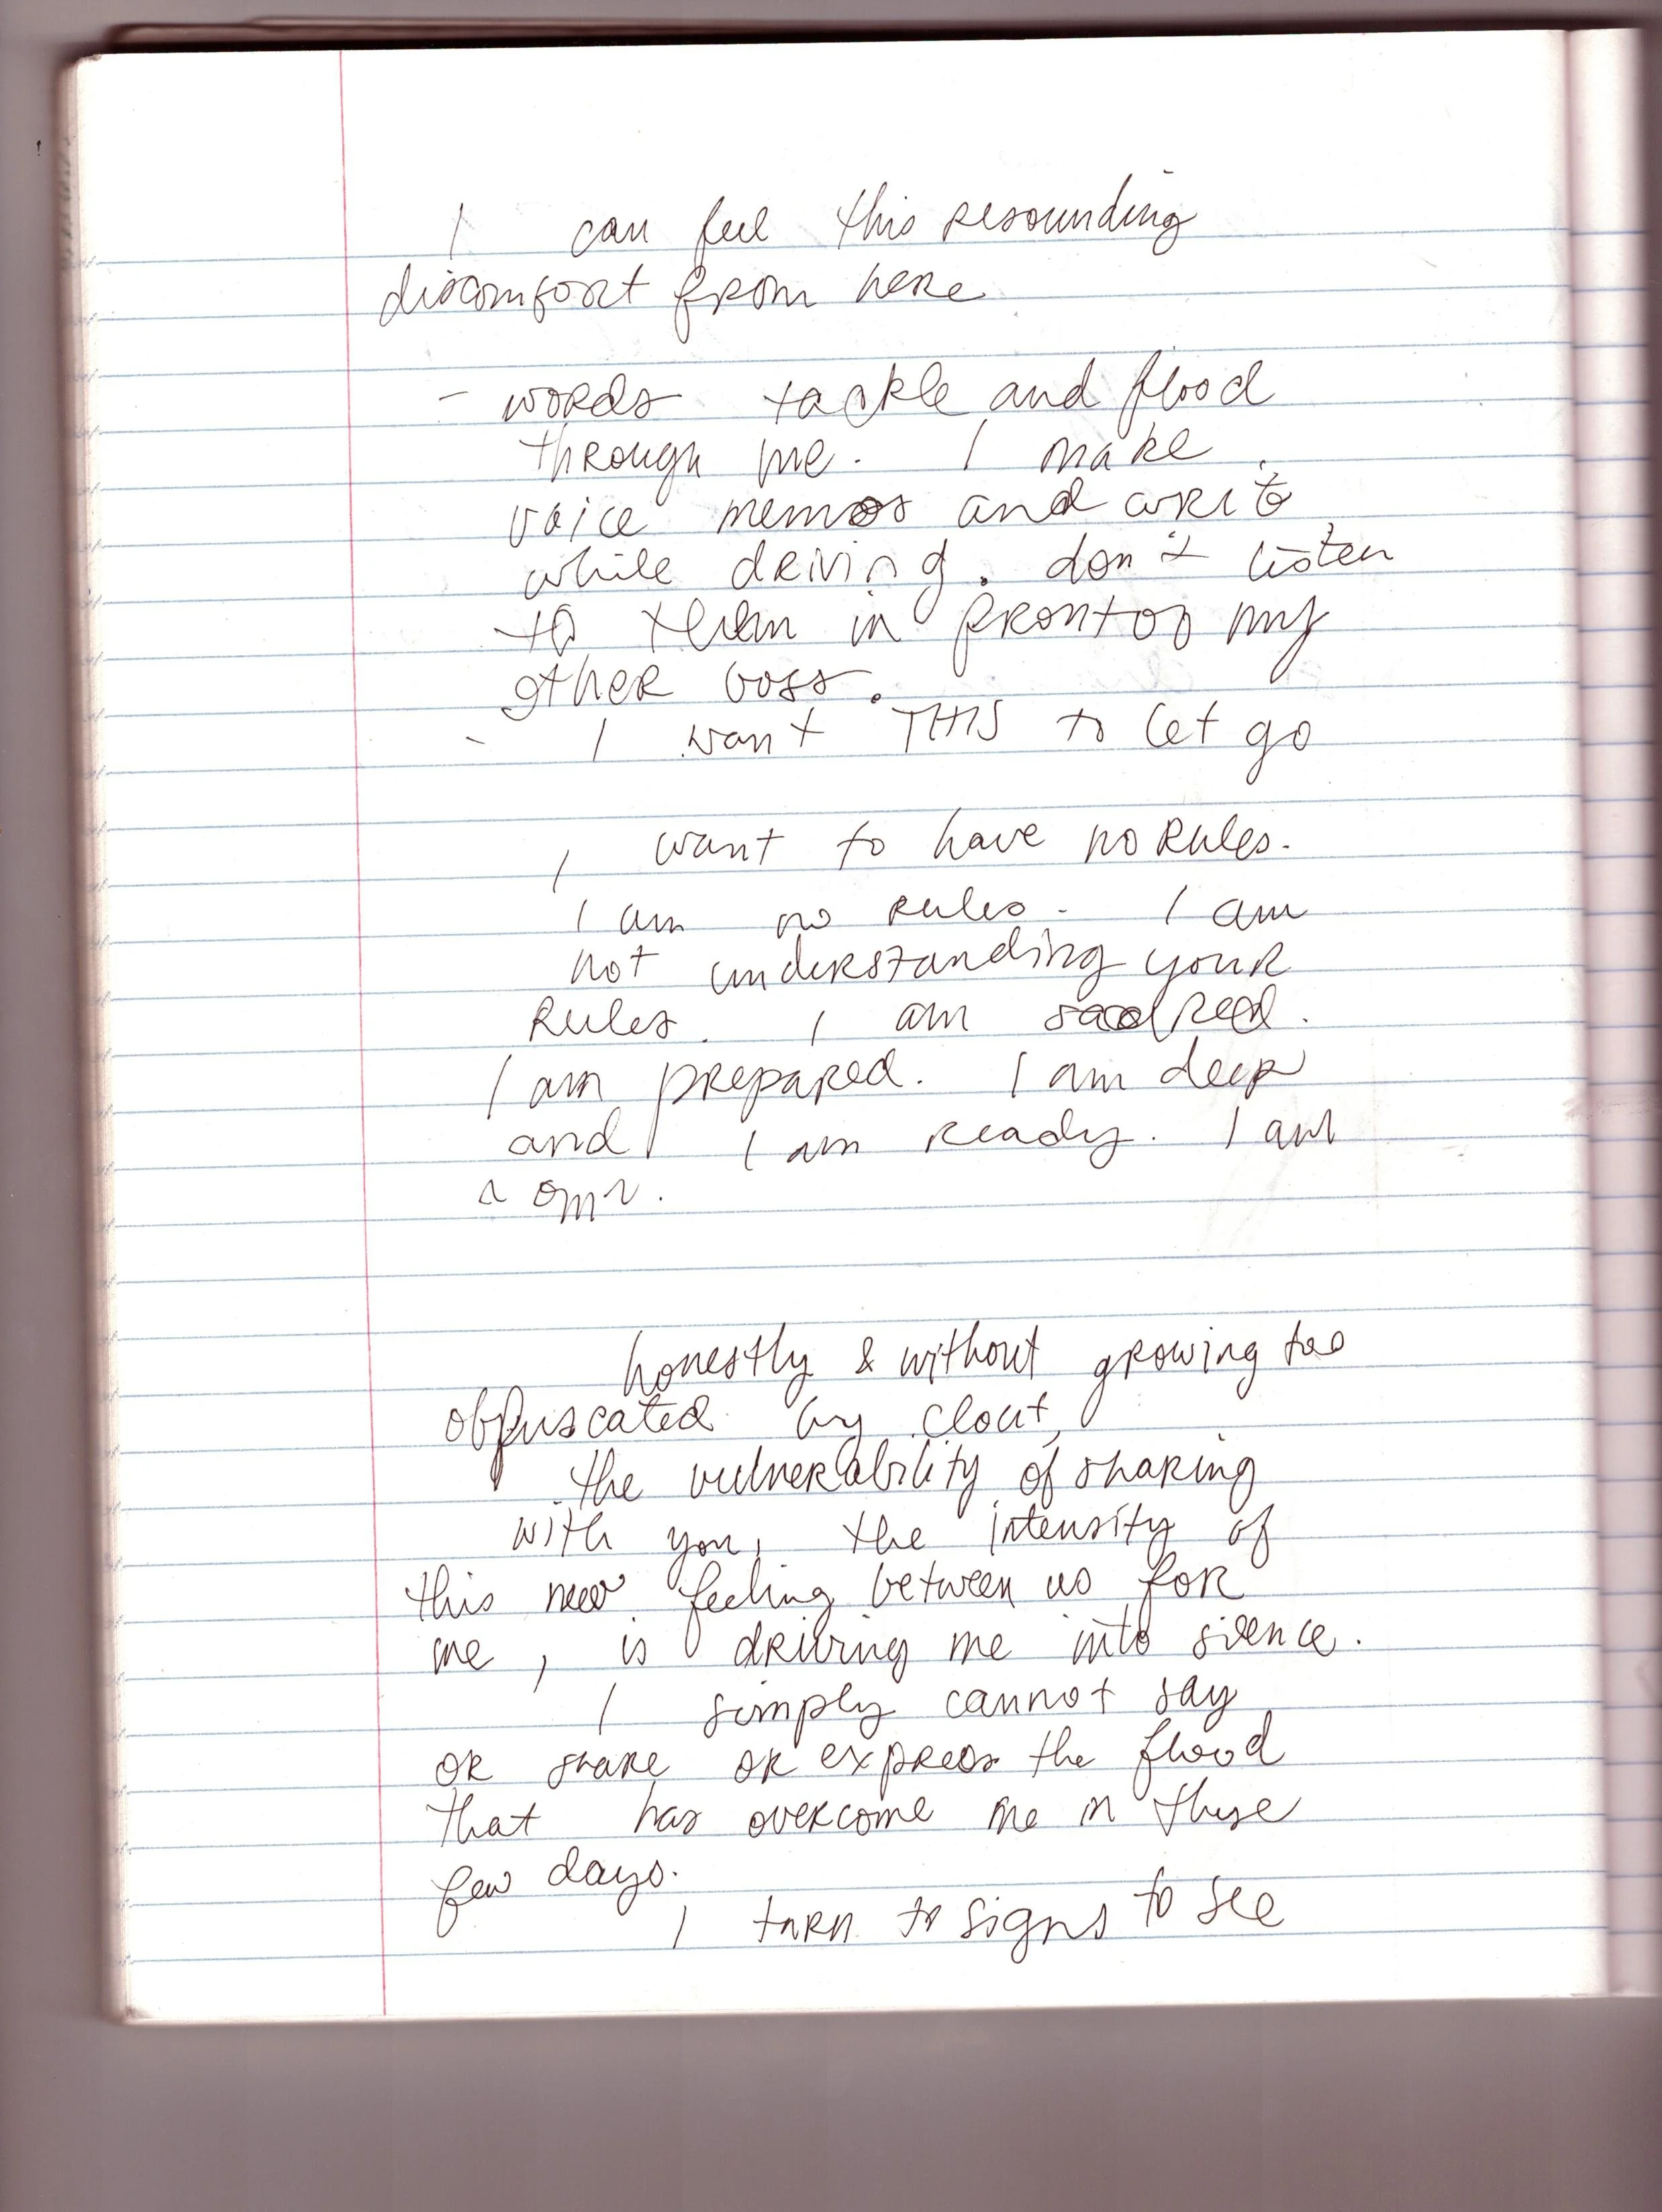 I can feel this resounding
discomfort from here
- words tackle and flood
through me. I make
voice memos and write
while driving. don't listen
to them in front of my
other boss.
- I want THIS to let go
I want to have no rules.
I am no rules. I am
not understanding your
rules. I am sacred.
I am prepared. I am deep
and I am ready. I am
honestly & without growing too
obfuscated by clout,
the vulnerability of sharing
with you, the intensity of
this new feeling between us for
me, is driving me into silence.
I simply cannot say
or share or express the flood
that has overcome me in these
few days.
I turn to signs to see